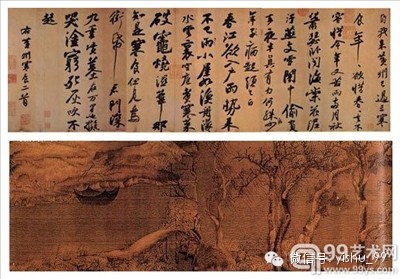 自我來黃州已過三寒
食年年欲惜春春去不
容惜今年又苦雨兩月秋
蕭瑟臥聞海棠花泥
污燕支雪闇中偷負
去夜半真有力何殊少
年子病起頭已白
春江欲入戶雨勢來
不已雨小屋如漁舟濛濛
水雲裏空庖煮寒菜
破竈燒濕葦那
知是寒食但見烏
銜帋君門深
九重墳墓在萬里也擬
哭塗窮死灰吹不
起
右黃州寒食二首
微信号: yishu_99
99艺术网
www.99ys.com